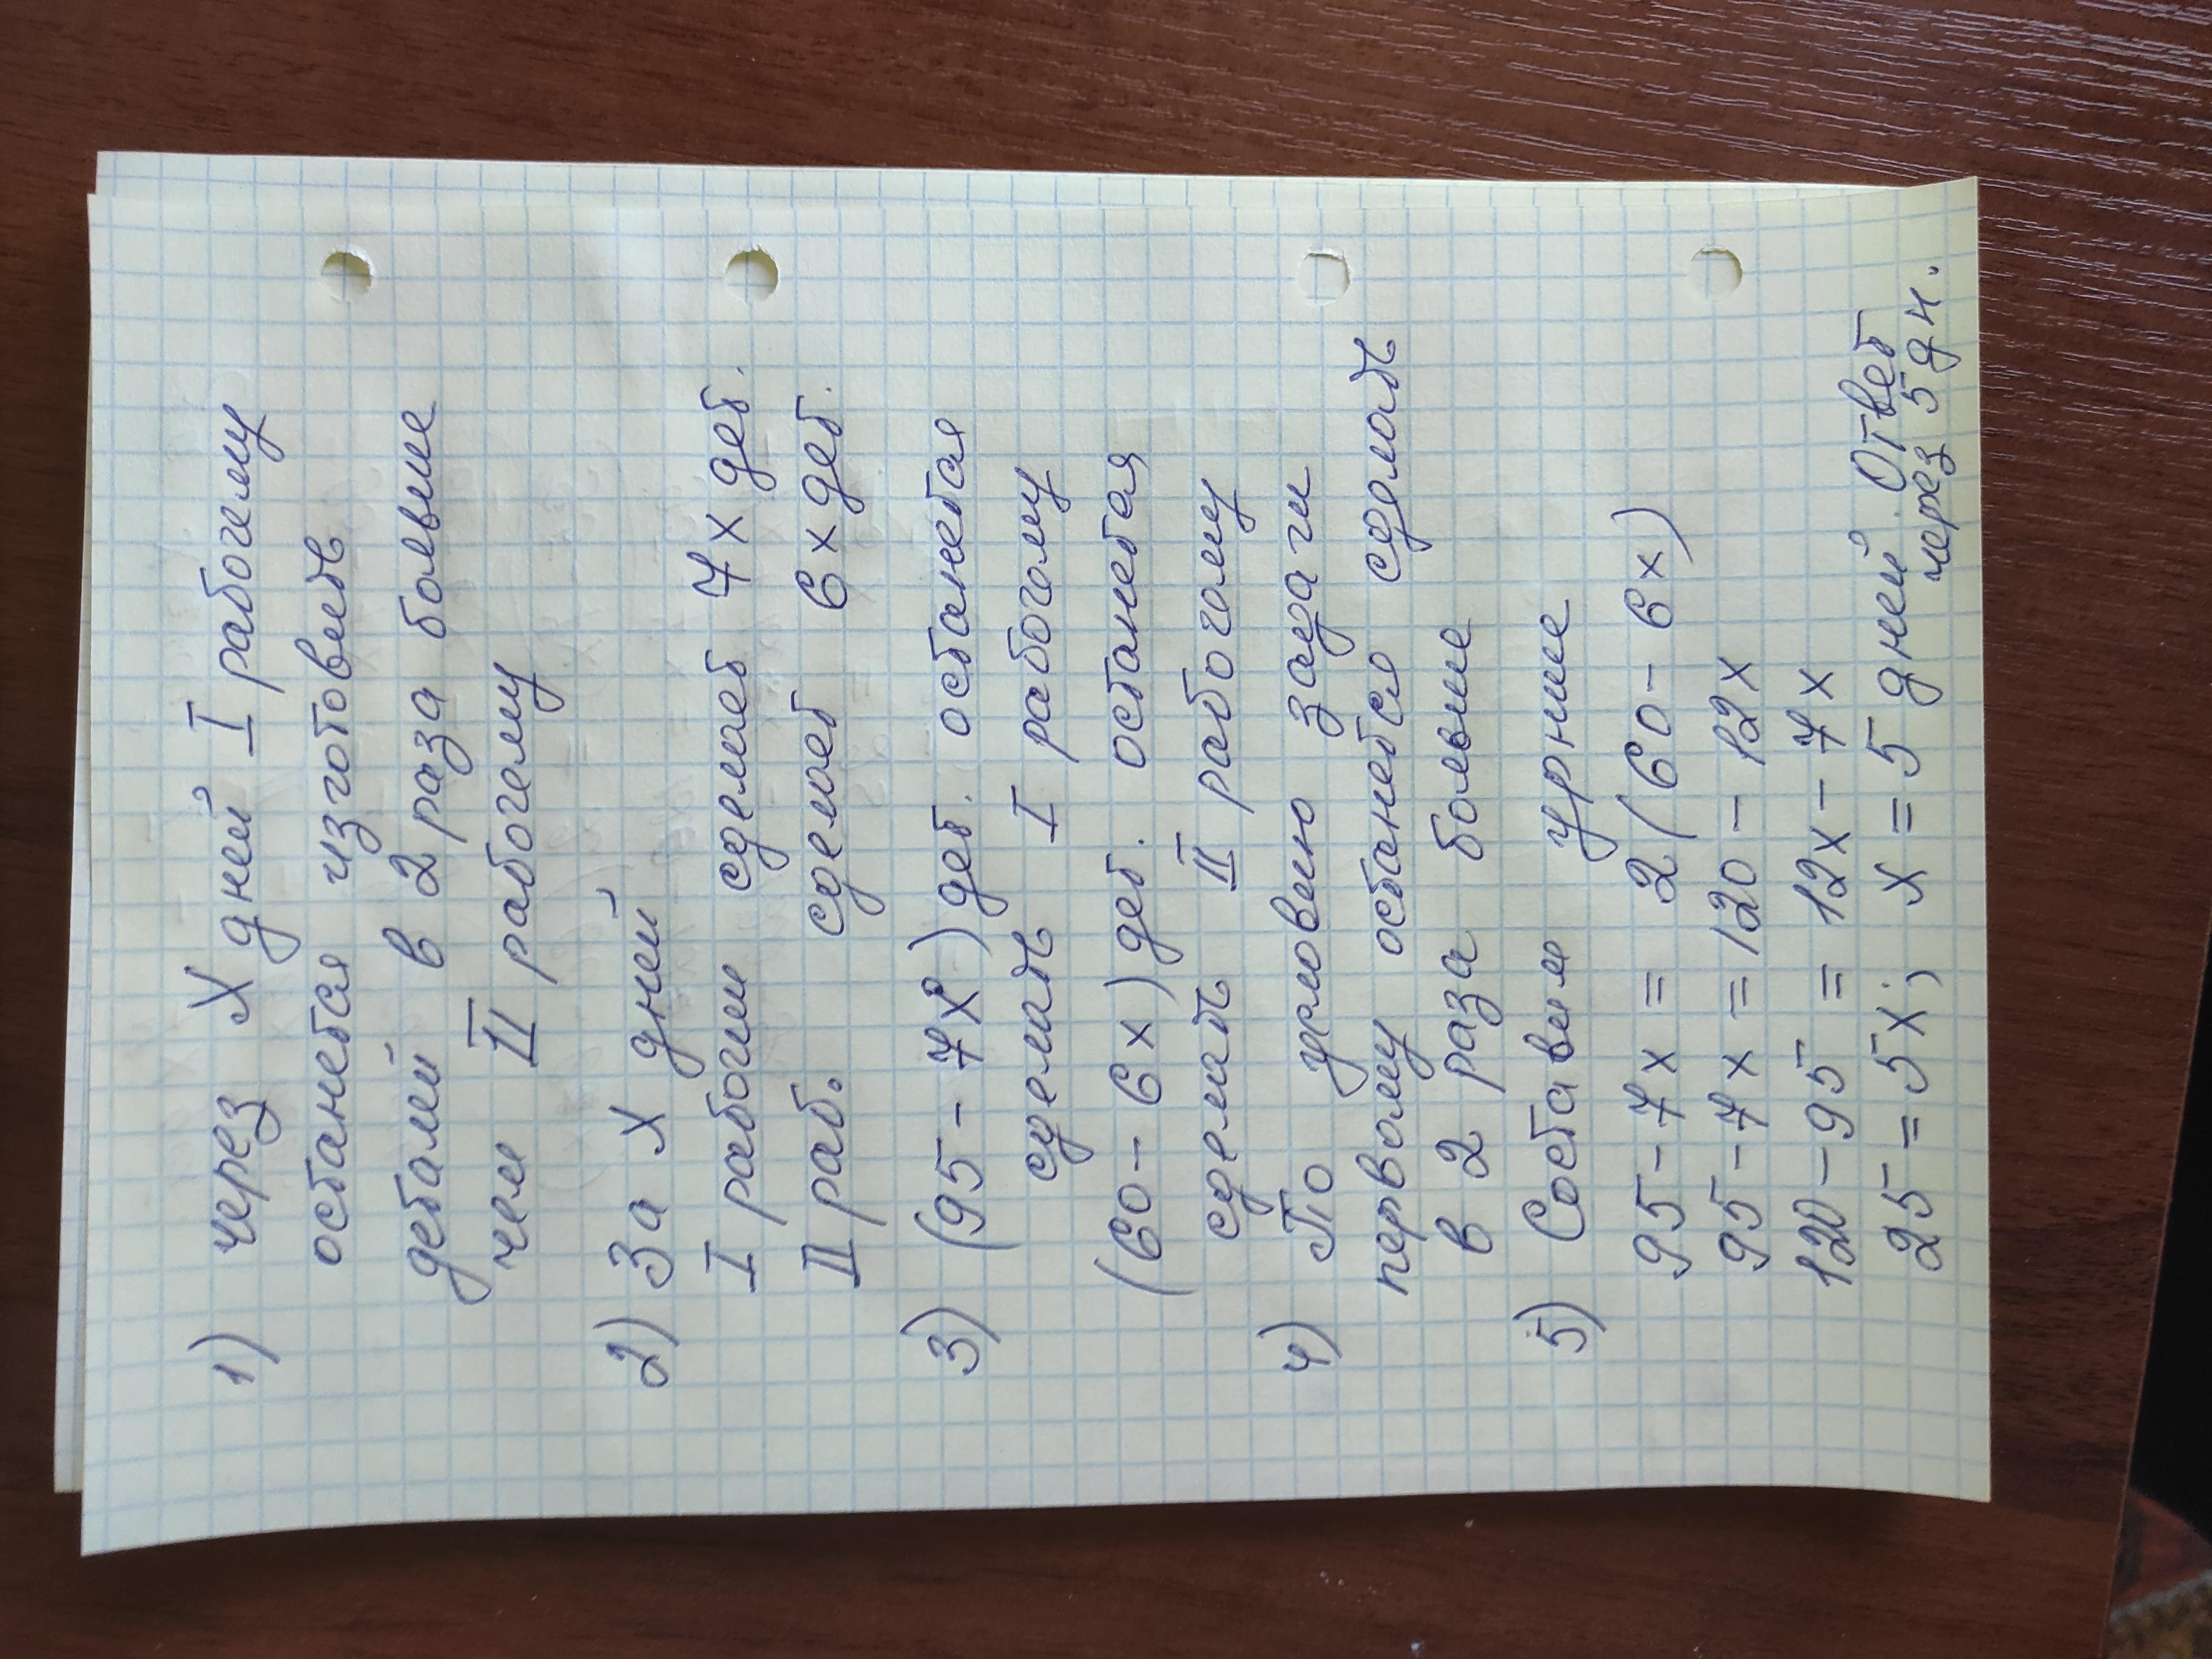 1) через X дней I рабочему
останется изготовить
деталей в 2 раза больше
чем II рабочему
2) За X дней
I рабочий сделает 7x дет.
II раб. сделает 6x дет.
3) (95 - 7x) дет. останется
сделать I рабочему
(60 - 6x) дет. останется
сделать II рабочему
4) По условию задачи
первому останется сделать
в 2 раза больше
5) Составим урние
95 - 7x = 2(60 - 6x)
95 - 7x = 120 - 12x
120 - 95 = 12x - 7x
25 = 5x; x = 5 дней. Ответ
через 5 дн.